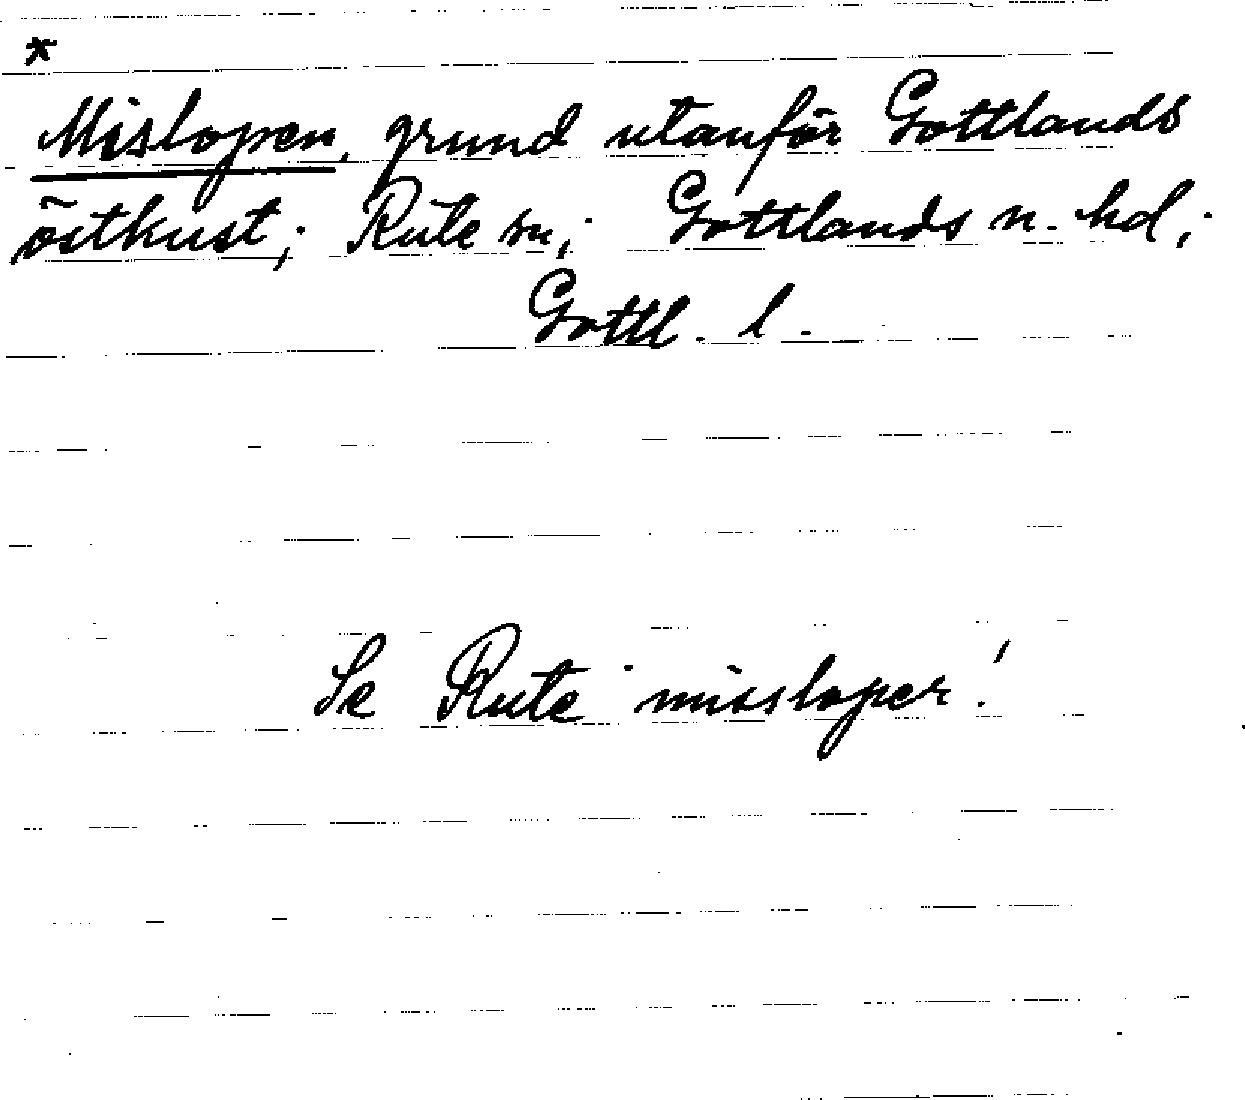 *
Mislopen, grund utanför Gottlands
östkust; Rute sn; Gottlands n. hd;
Gottl. l.
Se Rute missloper!